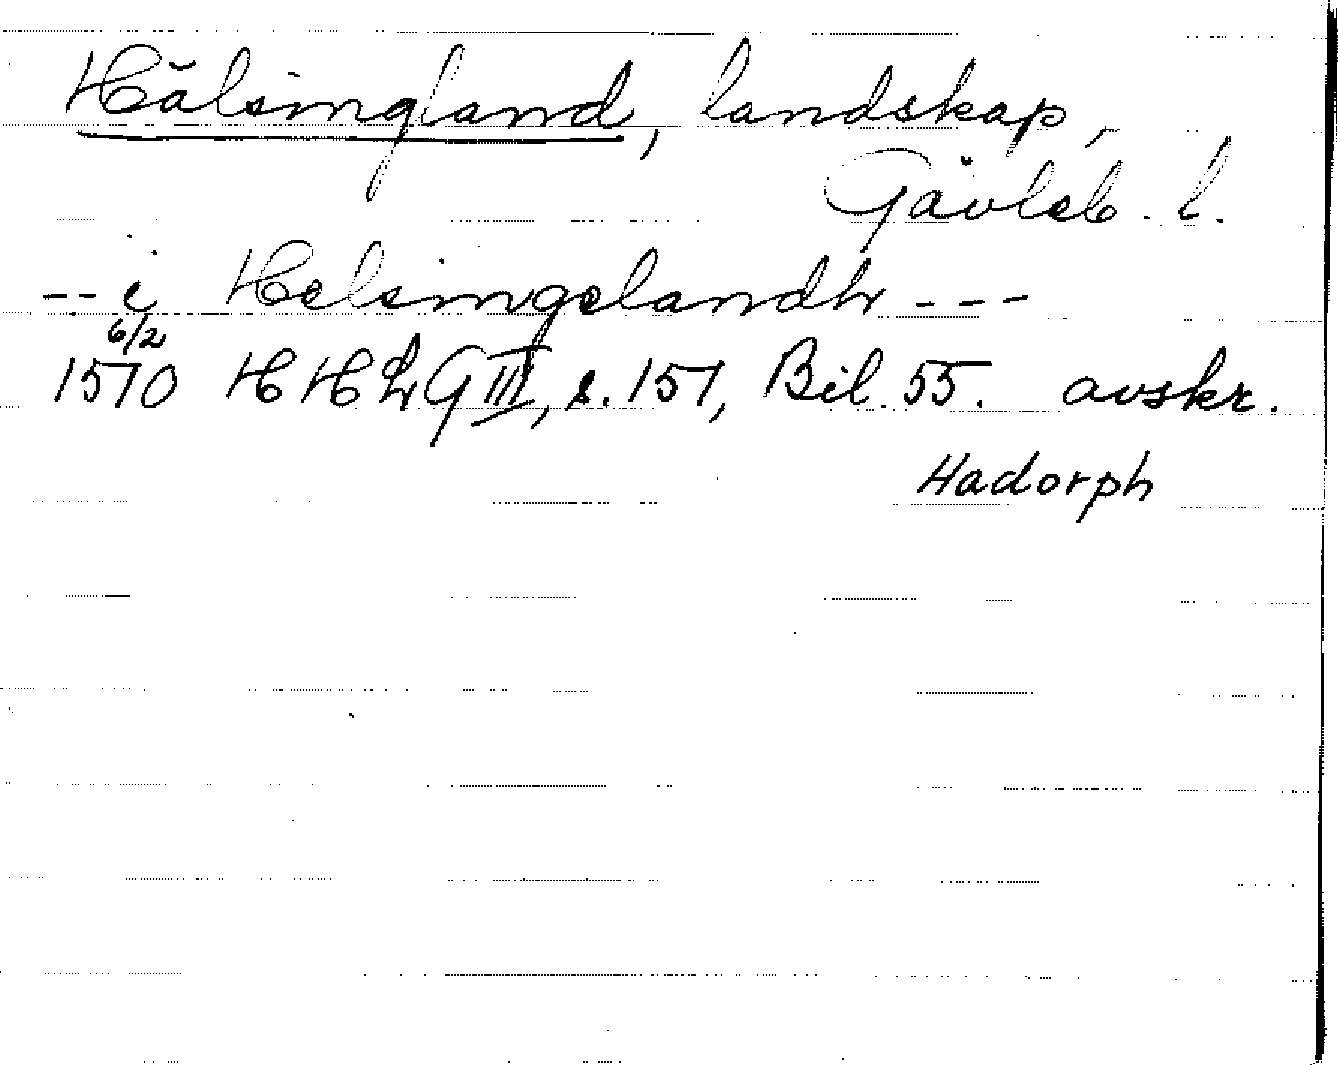 Hälsingland, landskap,
Gävleb. l.
--i Helsingelandh ---
6/2
1570 HHLG III, s. 157, Bil. 55. avskr.
Hadorph